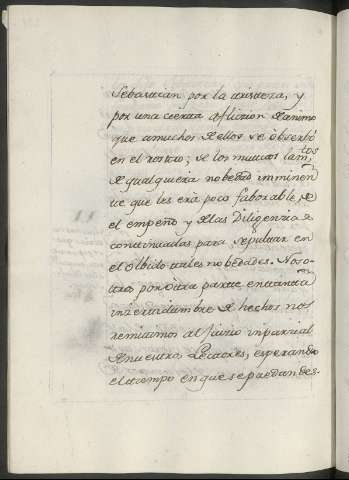 Sebastian por la tristeza, y
por una cierta afliccion de animo
que a muchos de ellos se observó
en el rostro; de los mutuos lam.tos
de qualquiera nobedad imminen
te que les era poco faborable, de
el empeño y de las Diligencias
continuadas para sepultar en
el olbido tales nobedades. Noso-
tros por otra parte en tanta
inzertidumbre de hechos nos
remitimos al juicio inparcial
de nuestros Lectores, esperando
el tiempo en que se puedan des-